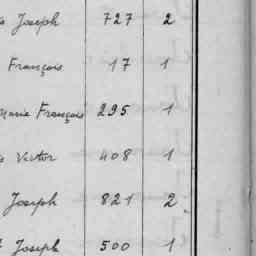 Joseph 727 2
François 17 1
Marie François 295 1
Victor 408 1
Joseph 821 2
Joseph 500 1